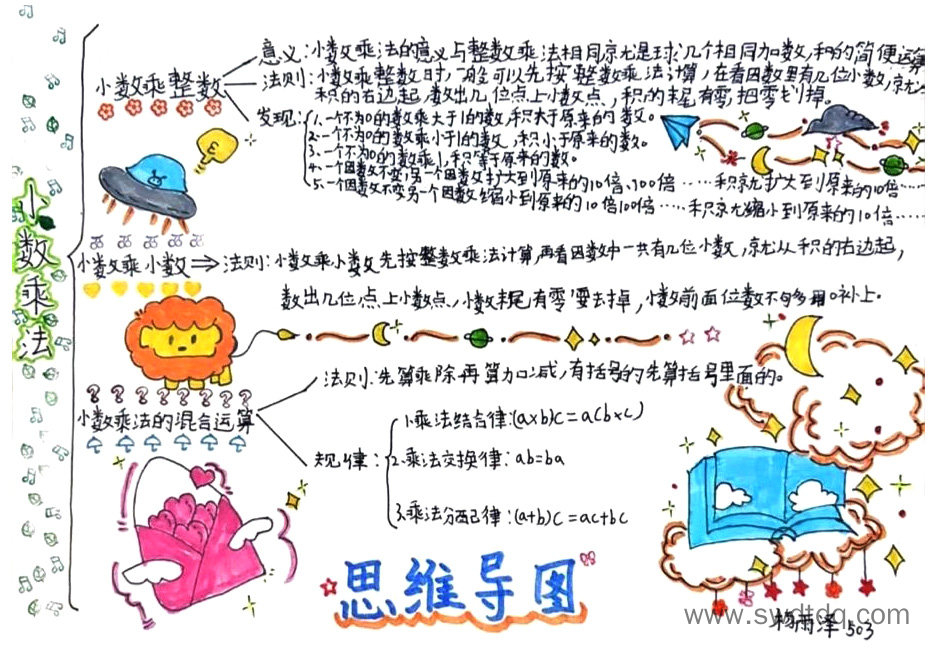 小数乘法
小数乘整数
意义:小数乘法的意义与整数乘法相同就是求几个相同加数,和的简便运算
法则:小数乘整数时,可以先按整数乘法计算,在看因数里有几位小数,就从
积的右边起,数出几位点上小数点,积的末尾有零,把零划掉。
发现:
1、一个不为0的数乘大于1的数,积大于原来的数。
2、一个不为0的数乘小于1的数,积小于原来的数。
3、一个不为0的数乘1,积等于原来的数。
4、一个因数不变,另一个因数扩大到原来的10倍、100倍……积就扩大到原来的10倍……
5、一个因数不变另一个因数缩小到原来的10倍100倍……积就缩小到原来的10倍……
小数乘小数⇒法则:小数乘小数先按整数乘法计算,再看因数中一共有几位小数,就从积的右边起,
数出几位,点上小数点,小数末尾有零要去掉,小数前面位数不够用0补上。
小数乘法的混合运算
法则:先算乘除再算加减,有括号的先算括号里面的。
规律:
1.乘法结合律:(a×b)c=a(b×c)
2.乘法交换律:ab=ba
3.乘法分配律:(a+b)c=ac+bc
思维导图
www.sydtdq.com
杨雨泽 503